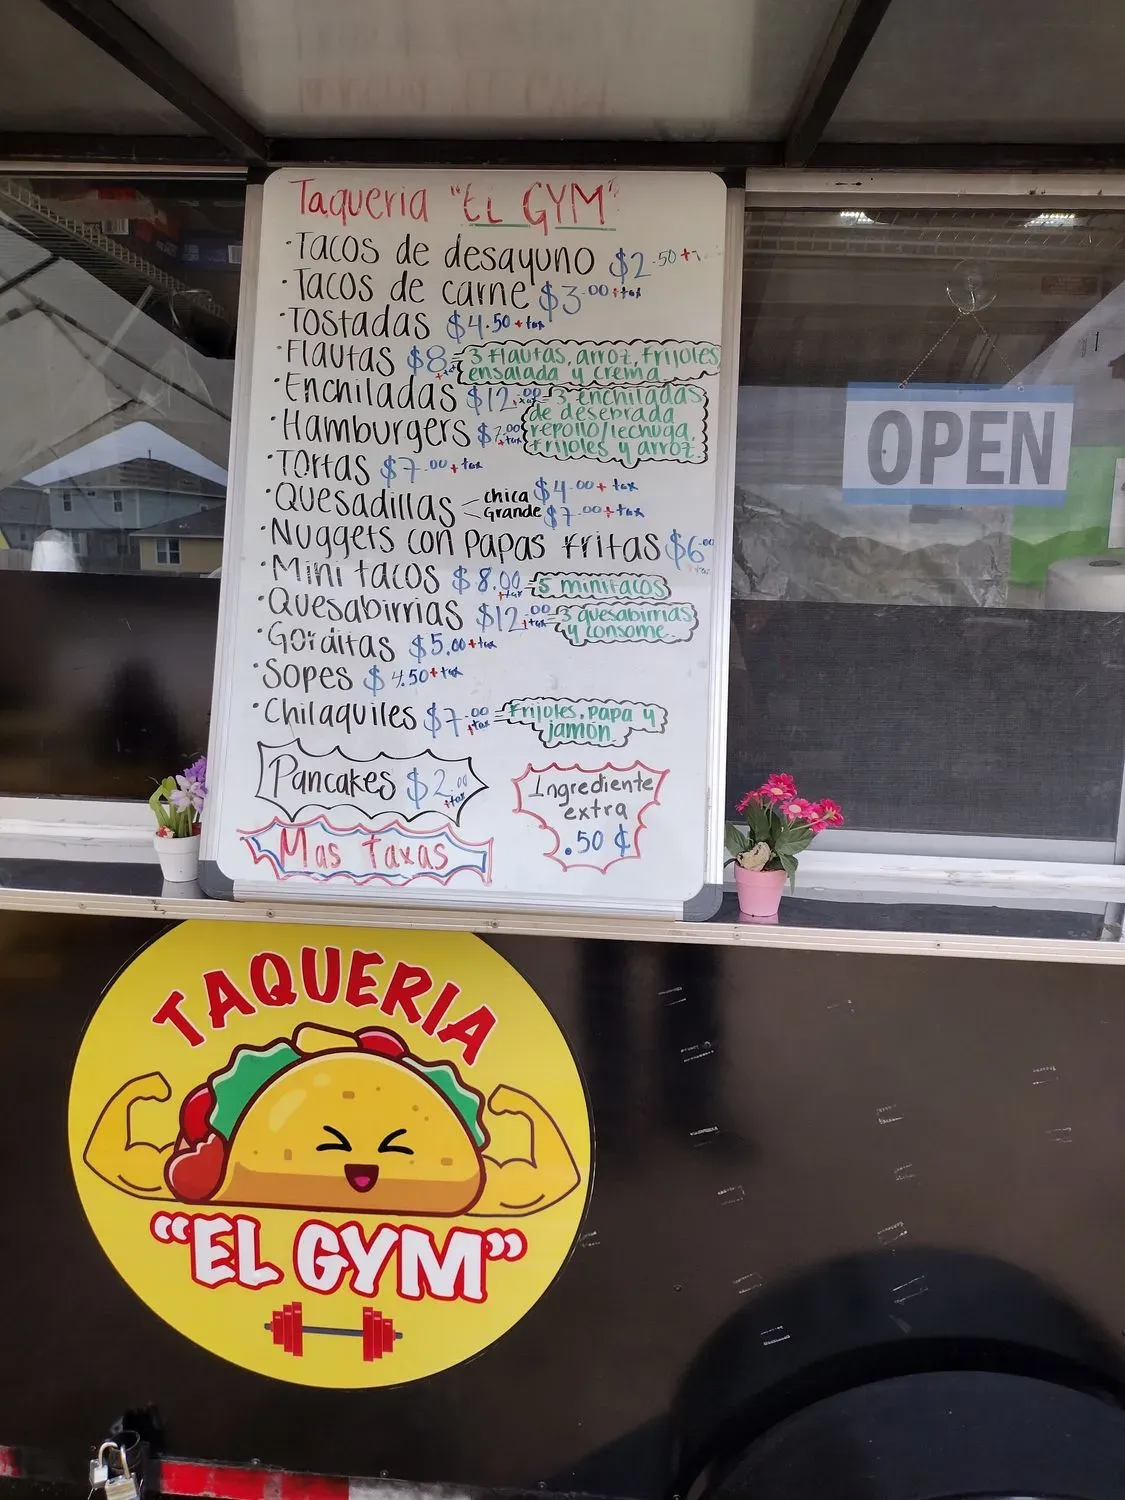 Taqueria "EL GYM"
·Tacos de desayuno $2.50+T
·Tacos de carne $3.00+tax
·Tostadas $4.50+tax
·Flautas $8 +tax = 3 Flautas, arroz, Frijoles
ensalada y crema
·Enchiladas $12.00 +tax = 3 enchiladas
de desebrada
·Hamburgers $7.00 +tax
repollo/lechuga,
frijoles y arroz.
·Tortas $7.00+tax
·Quesadillas
chica $4.00+tax
Grande $7.00+tax
·Nuggets con papas fritas $6.00 +tax
·Mini tacos $8.00 +tax = 5 minitacos
·Quesabirrias $12.00 +tax = 3 quesabirrias
y consome.
·Gorditas $5.00+tax
·Sopes $4.50+tax
·Chilaquiles $7.00 +tax = Frijoles, papa y
jamón.
Pancakes $2.00 +tax
Ingrediente
extra
.50 ¢
Mas taxas
OPEN
TAQUERIA
"EL GYM"